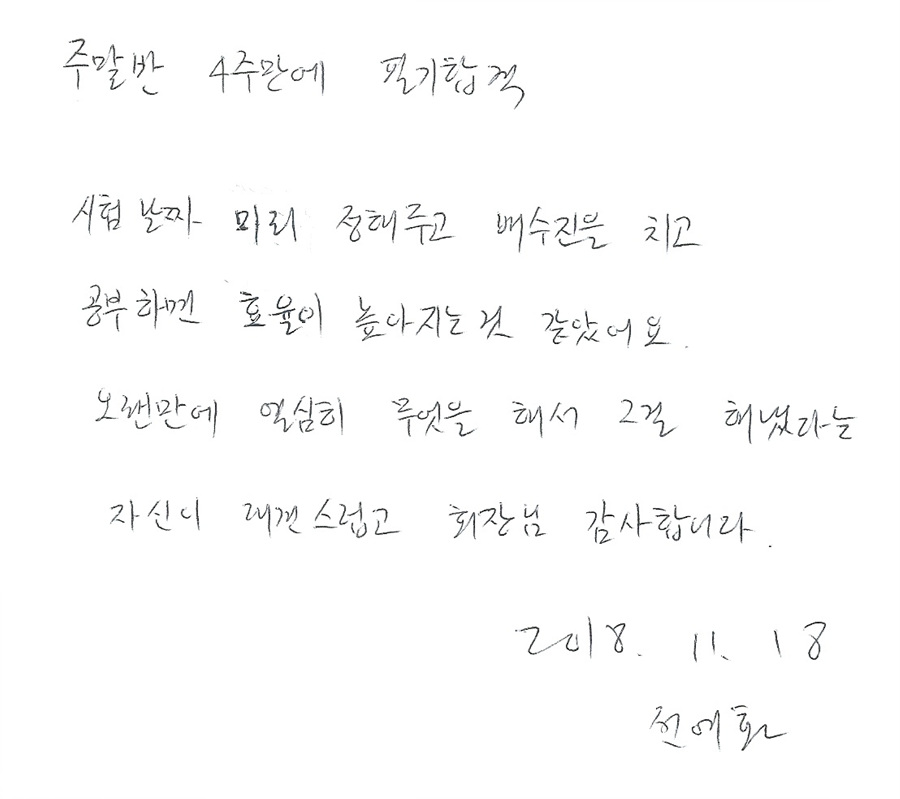 주말반 4주만에 필기합격
시험 날짜 미리 정해두고 배수진을 치고
공부하면 효율이 높아지는것 같았어요.
오랜만에 열심히 무엇을 해서 그걸 해냈다는
자신이 대견스럽고 회장님 감사합니다.
2018. 11. 18